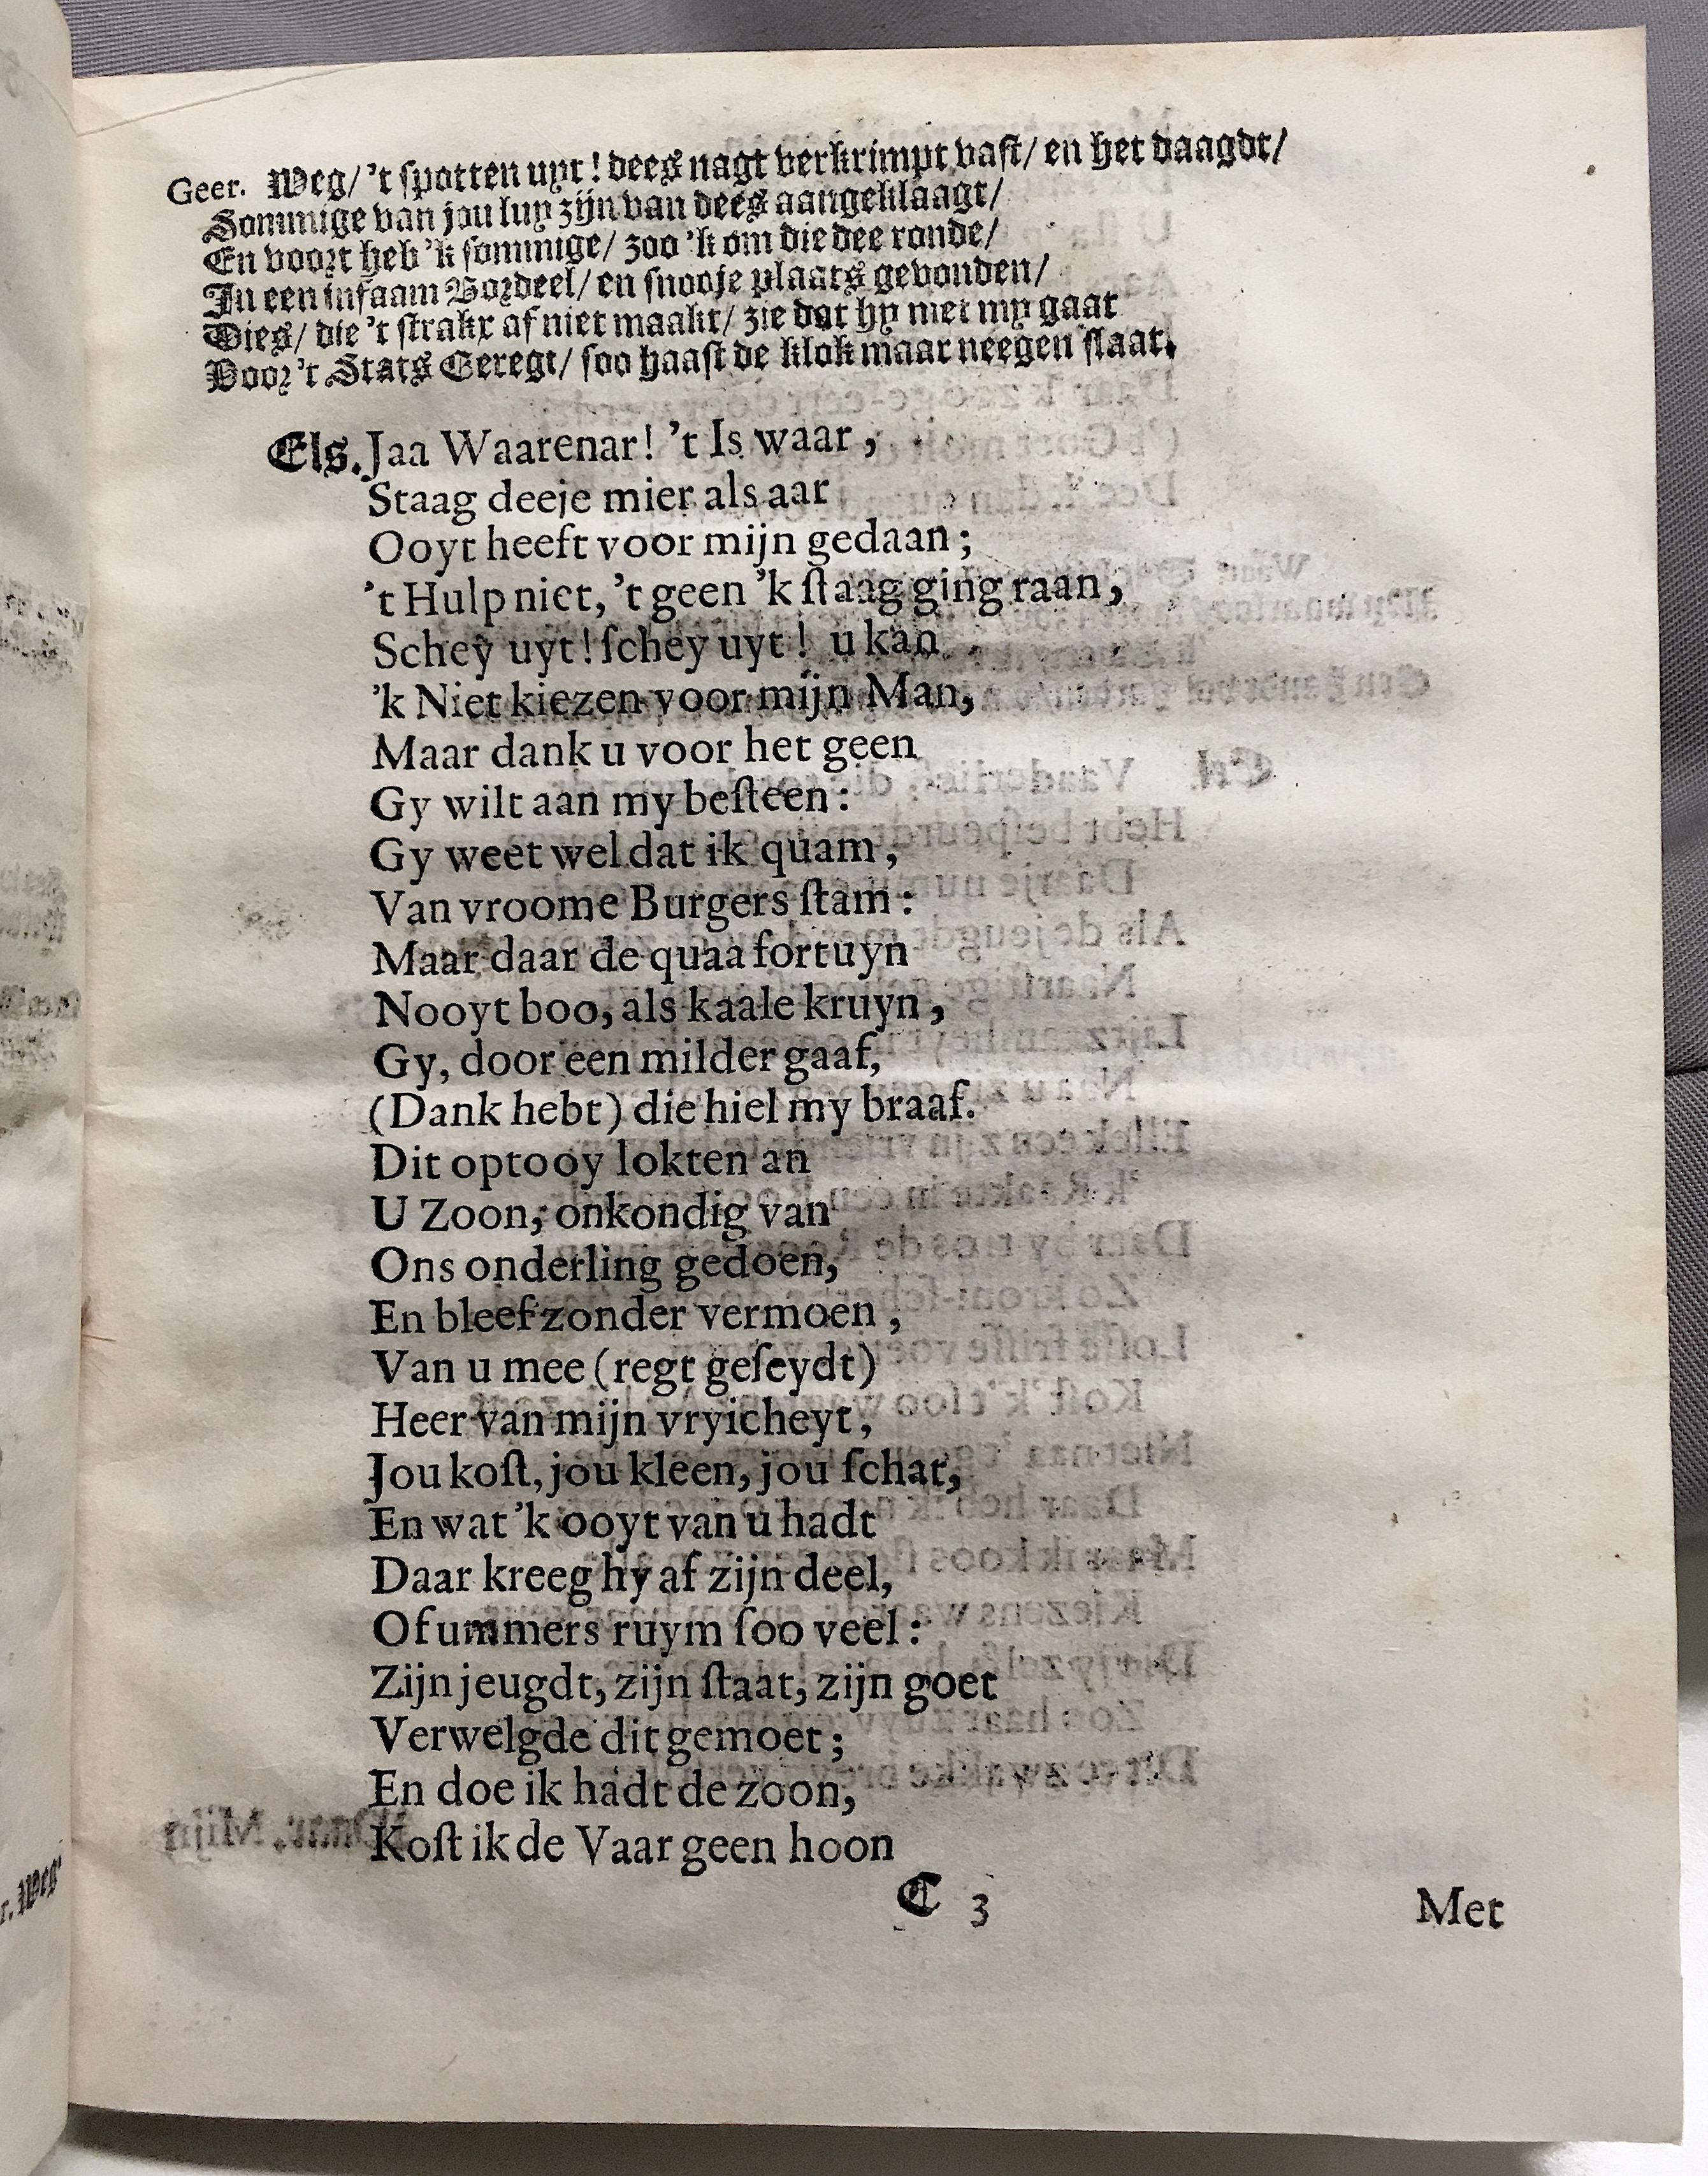 Geer. Weg/ 't spotten uyt! dees nagt verkrimpt vast/ en het daagdt/
Sommige van jou luy zijn van dees aangeklaagt/
En voort heb 'k sommige/ zoo 'k om die dee ronde/
In een infaam Bordeel/ en snooje plaats gevonden/
Dies/ die 't strakx af niet maakt/ zie dat hy met my gaat
Voor 't Stats Geregt/ soo haast de klok maar neegen slaat.
Els. Jaa Waarenar! 't Is waar,
Staag deeje mier als aar
Ooyt heeft voor mijn gedaan;
't Hulp niet, 't geen 'k ſtaag ging raan,
Schey uyt! ſchey uyt! u kan
'k Niet kiezen voor mijn Man,
Maar dank u voor het geen
Gy wilt aan my beſteen:
Gy weet wel dat ik quam,
Van vroome Burgers ſtam:
Maar daar de quaa fortuyn
Nooyt boo, als kaale kruyn,
Gy, door een milder gaaf,
(Dank hebt) die hiel my braaf.
Dit optooy lokten an
U Zoon, onkondig van
Ons onderling gedoen,
En bleef zonder vermoen,
Van u mee (regt geſeydt)
Heer van mijn vryicheyt,
Jou koſt, jou kleen, jou ſchat,
En wat 'k ooyt van u hadt
Daar kreeg hy af zijn deel,
Of ummers ruym ſoo veel:
Zijn jeugdt, zijn ſtaat, zijn goet
Verwelgde dit gemoet;
En doe ik hadt de zoon,
Koſt ik de Vaar geen hoon
C 3 Met